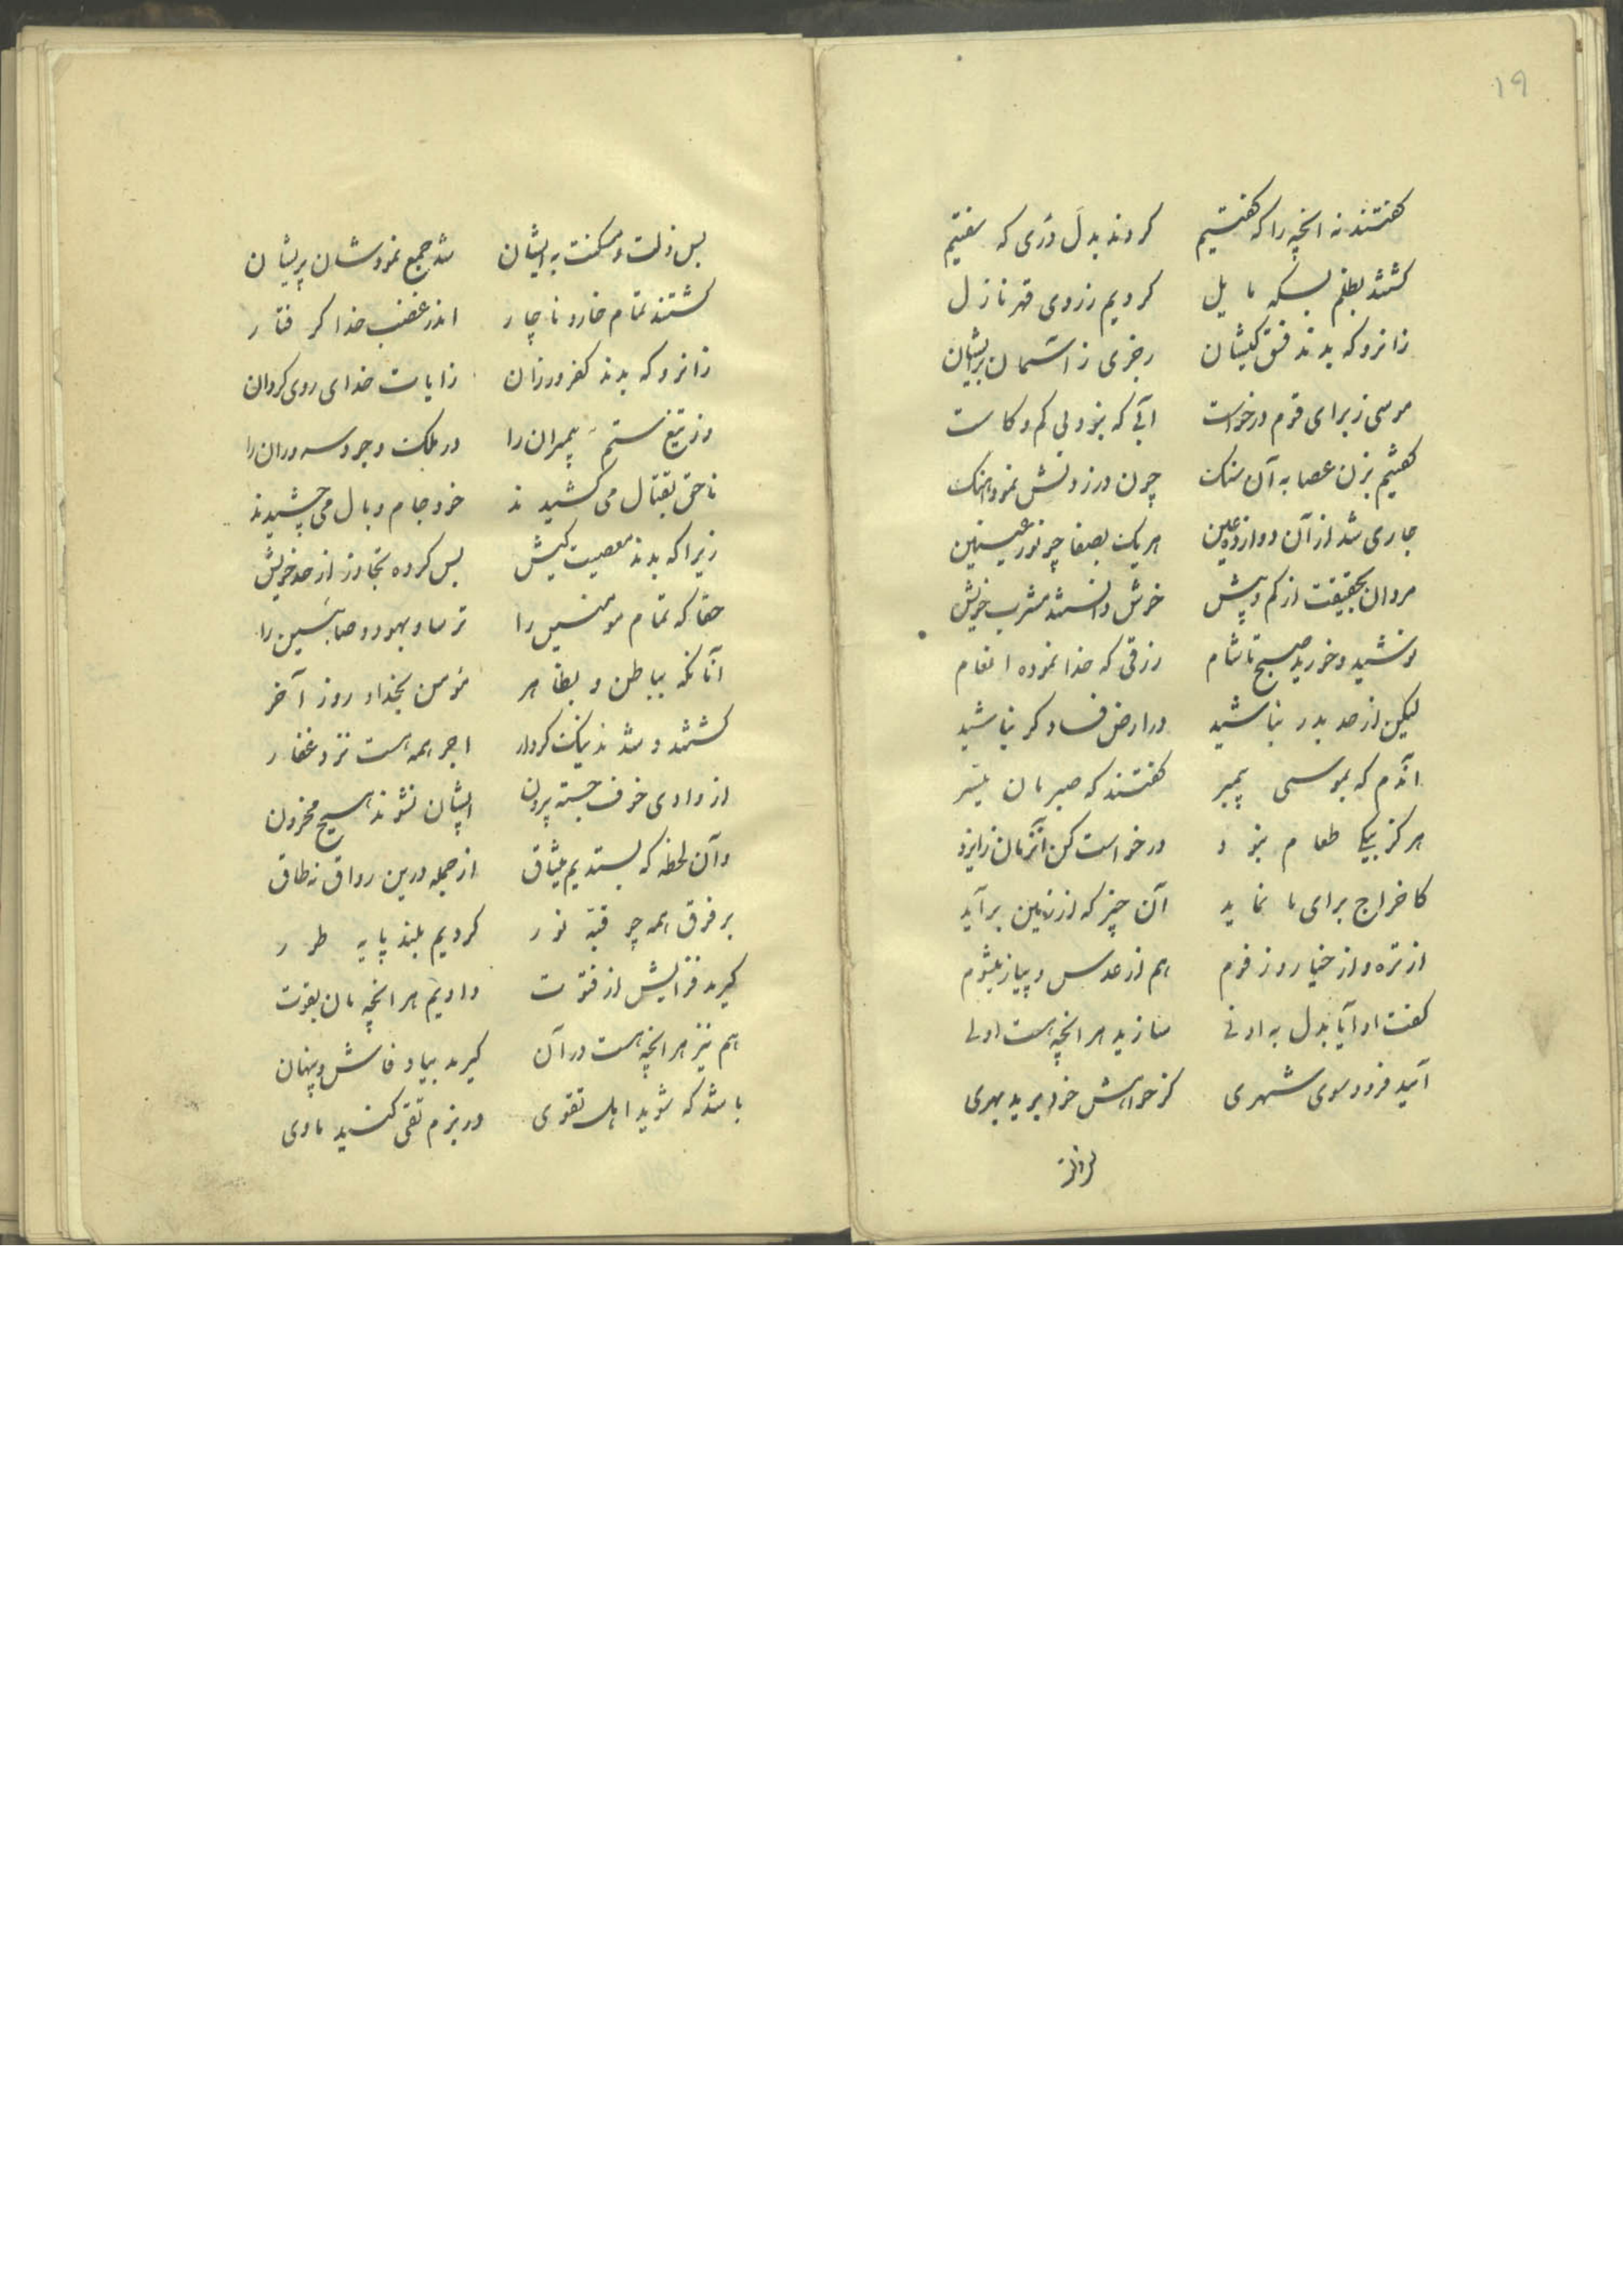 ۱۹
گفتند نه انچه را که گفتیم کردند بدل دُری که سفتیم
گشتند بظلم بسکه مایل کردیم ز روی قهر نازل
زانرو که بدند فسق کیشان رجزی ز آسمان بر ایشان
موسی ز برای قوم درخواست آبی که بنو دبی کم و کاست
گفتیم بزن عصا به آن سنک چون در زدنش نمود اهنک
جاری شد از آن دوازده عین هر یک بصفا چو نور عینین
مردان بحقیقت از کم و بیش خوش دانستند مشرب خویش
نوشید و خورید صبح تا شام رزقی که خدا نموده انعام
لیکن از حد بدر نباشید در ارض فسادگر نباشید
آندم که بموسی پیمبر گفتند که صبرمان میسر
هرگز بیکی طعام نبود درخواست کن آنزمان ز ایزد
کاخراج برای ما نماید آن چیز که از زمین برآید
از تره و از خیار و ز فوم هم از عدس و پیاز بلثوم
گفت او آیا بدل به ادنی سازید هر انچه هست اولی
آیید فرود سوی شهری کز خواهش خود برید بهری
پس ذلت و مسکنت به ایشان شد جمع نمودشان پریشان
گشتند تمام خار و ناچار اندر غضب خدا گرفتار
زانرو که بدند کفرورزان زایات خدای روی گردان
وز تیغ ستم پیمبران را در ملک وجود سروران را
ناحق بقتال می کشیدند خود جام وبال می چشیدند
زیرا که بدند معصیت کیش بس کرده تجاوز از حد خویش
حقا که تمام مومنین را ترسا و یهود و صابئین را
آنانکه بباطن و بظاهر مؤمن بخدا و روز آخر
گشتند و شدند نیک کردار اجر همه هست نزد غفار
از وادی خوف جسته بیرون ایشان نشوند هیچ محزون
وآن لحظه که بستدیم میثاق از جمله درین رواق نه طاق
بر فرق همه چو قبّه نور کردیم بلند پایه طور
گیرید فزایش از فتوت دادیم هر انچه مان بقوت
هم نیز هر انچه هست در آن گیرید بیاد فاش و پنهان
باشد که شوید اهل تقوی در بزم تقی کنید ماوی